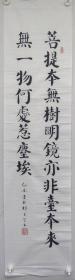 菩提本無樹明鏡亦非臺本來
無一物何處惹塵埃